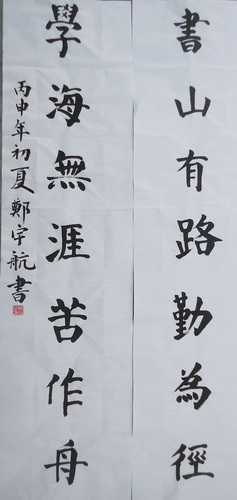 書山有路勤為徑
學海無涯苦作舟
丙申年初夏鄭宇航書